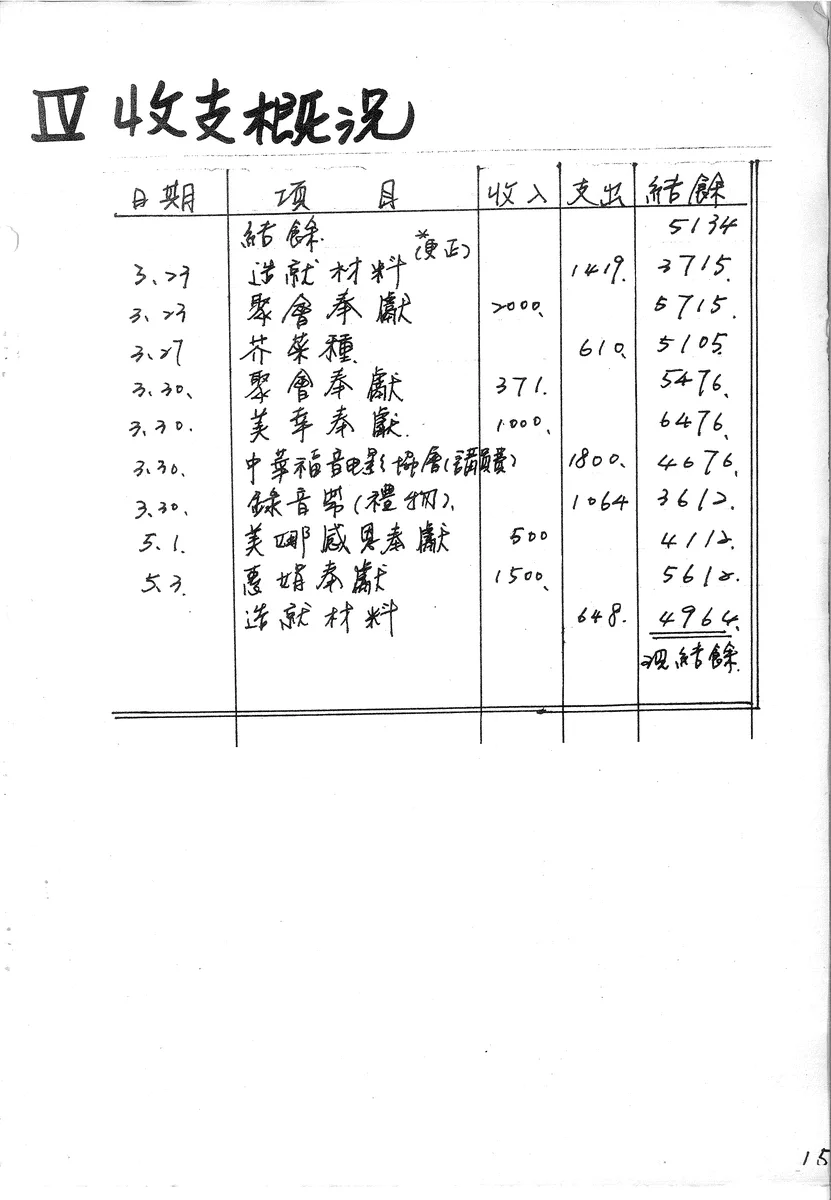 IV 收支概況
日期 項目 收入 支出 結餘
結餘 5134
*(更正)
3.23 造就材料 1419. 3715.
3.23 聚會奉獻 2000. 5715.
3.27 芥菜種 610. 5105.
3.30. 聚會奉獻 371. 5476.
3.30. 美幸奉獻. 1000. 6476.
3.30. 中華福音電影協會(講員費) 1800. 4676.
3.30. 錄音帶(禮物). 1064 3612.
5.1. 美娜感恩奉獻 500 4112.
5.3. 惠娟奉獻 1500. 5612.
造就材料 648. 4964.
現結餘.
15